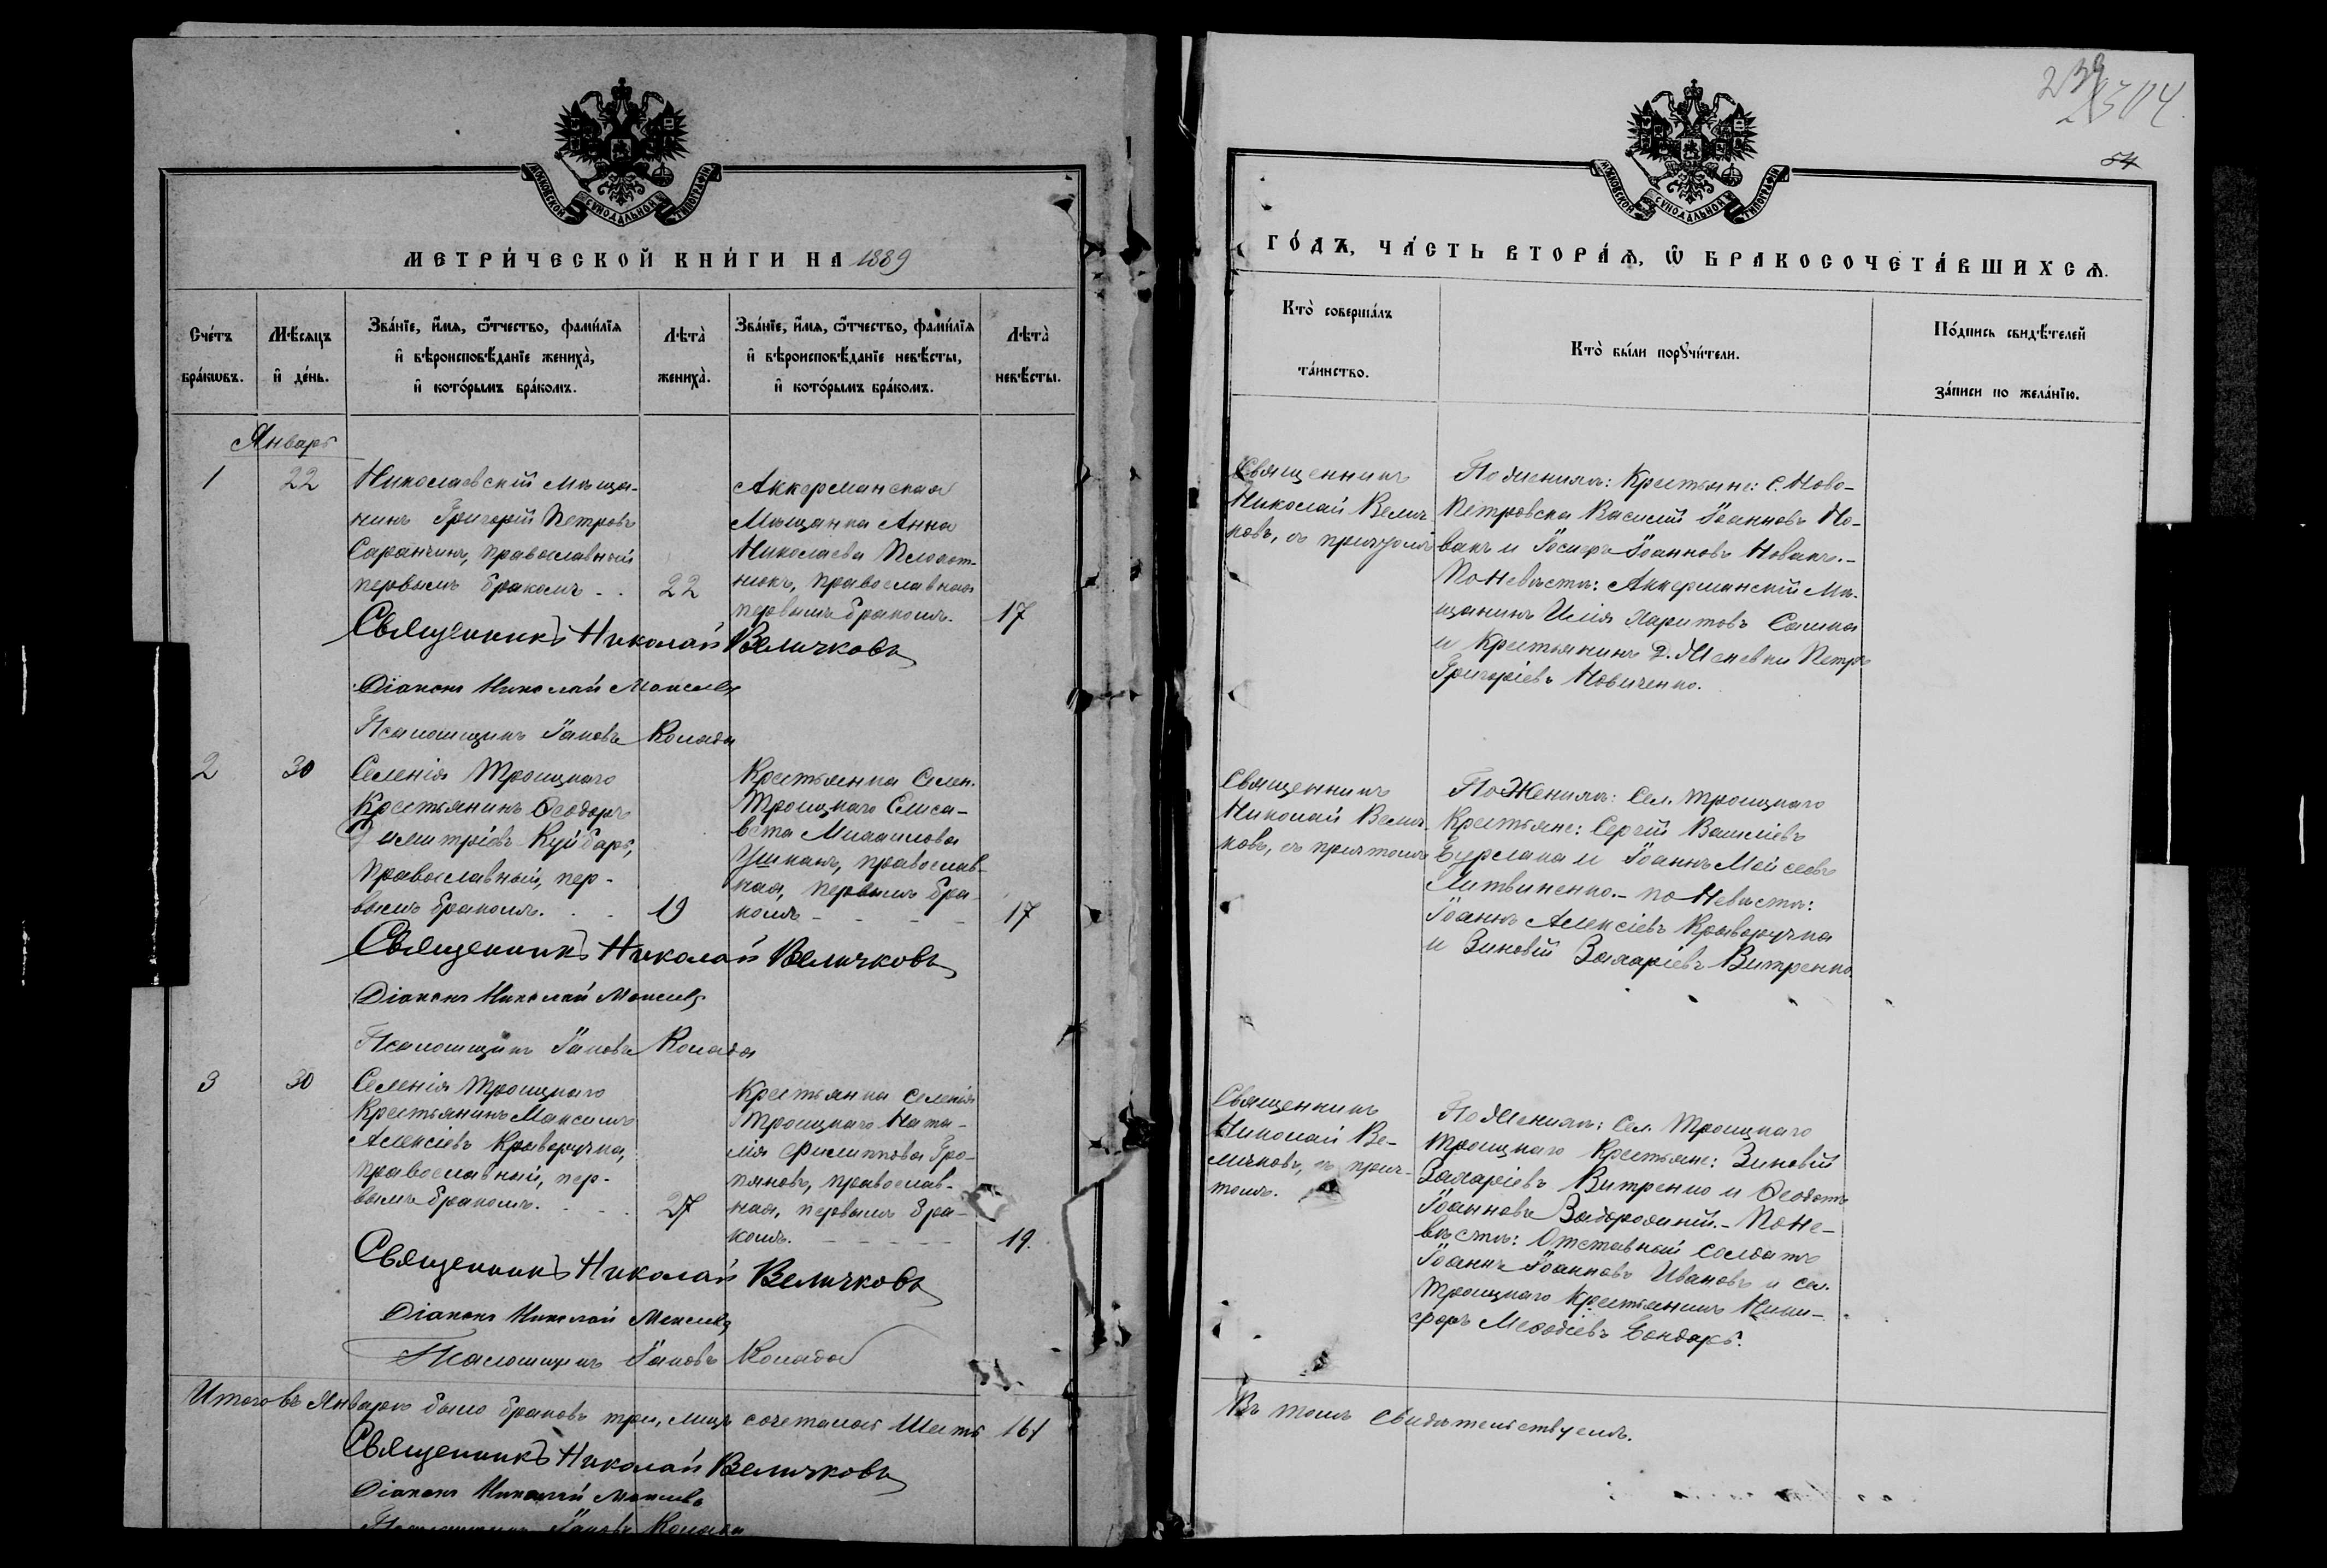 МОСКОВСКОЙ СѴНОДАЛЬНОЙ ТИПОГРАФІИ
МЕТРИ́ЧЕСКОЙ КНИ́ГИ НА 1889
Сче́тъ
бра́кѡвъ.
Мѣ́сяцъ
и҆ де́нь.
Зва́нїе, и҆́мѧ, ѻ҆́тчество, фами́лїѧ
и҆ вѣроисповѣ́данїе жениха̀,
и҆ кото́рымъ бра́комъ.
Лѣта̀
жениха̀.
Зва́нїе, и҆́мѧ, ѻ҆́тчество, фами́лїѧ
и҆ вѣроисповѣ́данїе невѣ́сты,
и҆ кото́рымъ бра́комъ.
Лѣта̀
невѣ́сты.
Январь
1
22
Николаевскій мѣща-
нинъ Григорій Петровъ
Саранчинъ, православный
первымъ бракомъ - .
22
Аккерманская
Мѣщанка Анна
Николаева
православная
первымъ бракомъ.
17
Священникъ Николай Величковъ
Діаконъ Николай
Псаломщикъ Іаковъ Колада
2
30
Селенія Троицкаго
Крестьянинъ Ѳеодоръ
Димитріевъ Куйбарь,
православный, пер-
вымъ бракомъ. . .
19
Крестьянка Селен.
Троицкаго Елиса-
вета Михаилова
Ушкань, православ-
ная, первымъ бра-
комъ - - - -
17
Священникъ Николай Величковъ
Діаконъ Николай
Псаломщикъ Іаковъ Колада
3
30
Селенія Троицкаго
Крестьянинъ Максимъ
Алексіевъ Криворучка,
православный, пер-
вымъ бракомъ. - - .
27
Крестьянка селенія
Троицкаго Ната-
лія Филиппова Гро-
православ-
ная, первымъ бра-
комъ. - - - - -
19.
Священникъ Николай Величковъ
Діаконъ Николай
Псаломщикъ Іаковъ Колада
Итого въ Январѣ было браковъ три, лицъ сочеталось шесть 161
Священникъ Николай Величковъ
Діаконъ Николай
Псаломщикъ Іаковъ Колада
304
54
МОСКОВСКОЙ СѴНОДАЛЬНОЙ ТИПОГРАФІИ
ГО́ДЪ, ЧА́СТЬ ВТОРА́Ѧ, Ѽ БРАКОСОЧЕТА́ВШИХСѦ.
Кто̀ соверша́лъ
та́инство.
Кто̀ бы́ли порꙋчи́тели.
По́дпись свидѣ́телей
за́писи по жела́нїю.
Священникъ
Николай Велич-
ковъ, съ причтомъ
По женихѣ: Крестьяне: с. Ново-
петровска Василій Іоанновъ Но-
вакъ и Іосифъ Іоанновъ Новакъ.-
По невѣстѣ: Аккерманскій Мѣ-
щанинъ Илія Харитовъ
и крестьянинъ д. Петръ
Григоріевъ Новиченко.
Священникъ
Николай Велич-
ковъ, съ причтомъ
По Женихѣ: Сел. Троицкаго
Крестьяне: Сергій Василіевъ
Бурлака и Іоаннъ Моѵсеевъ
Литвиненко.- по Невѣстѣ:
Іоаннъ Алексіевъ Криворучка
и Зиновій Захаріевъ Витренко.
Священникъ
Николай Ве-
личковъ, съ прич-
томъ.
По Женихѣ: Сел. Троицкаго
Троицкаго Крестьяне: Зиновій
Захаріевъ Витренко и Ѳеодотъ
Іоанновъ Забродскій.- По Не-
вѣстѣ: Отставный солдатъ
Іоаннъ Іоанновъ Ивановъ и сел.
Троицкаго крестьянинъ Ники-
форъ Меѳодіевъ Бондарь.
Въ томъ свидѣтельствуемъ.